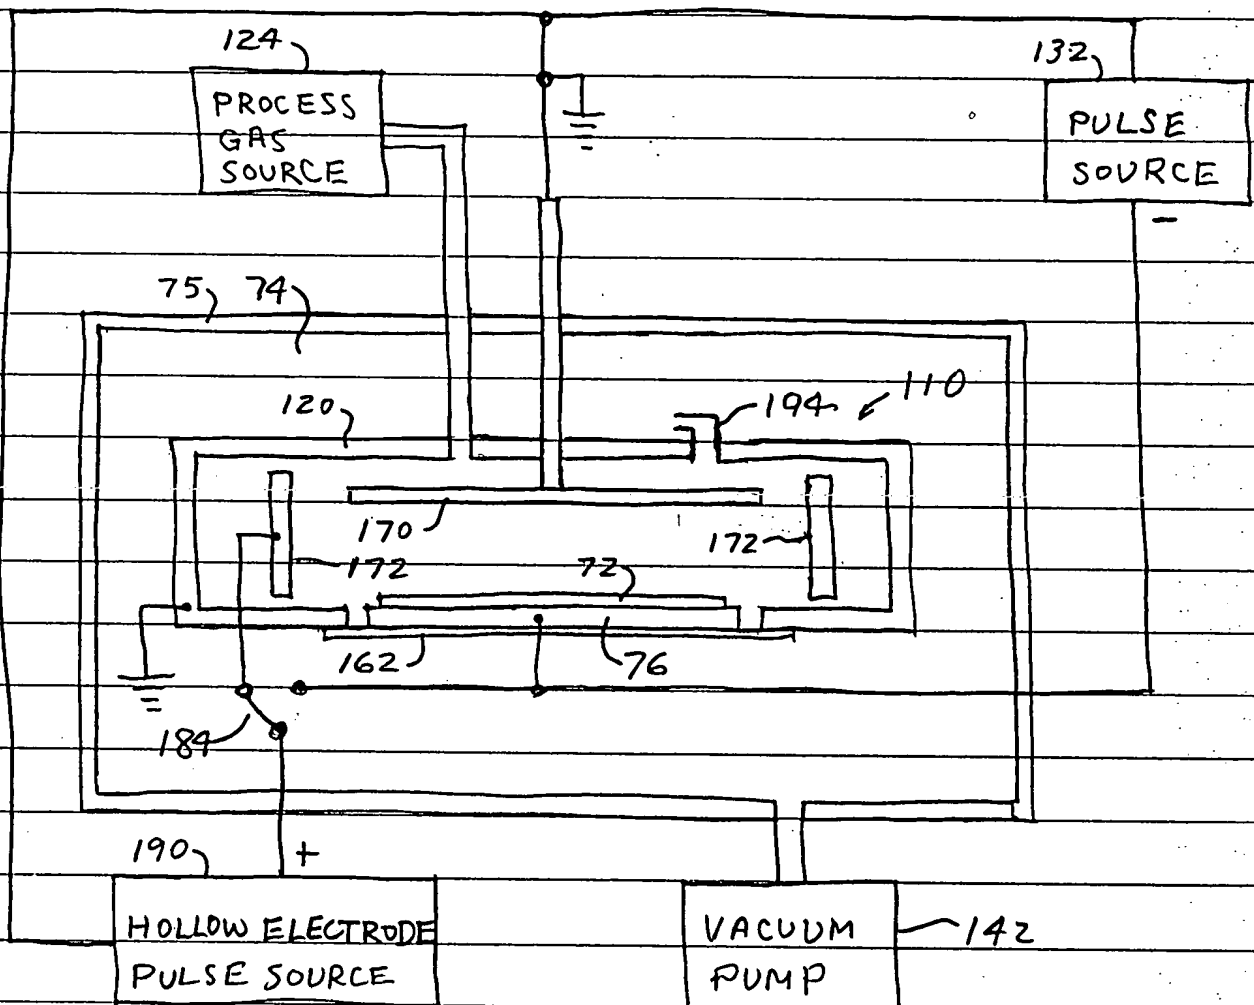 124
132
PROCESS
GAS
SOURCE
PULSE
SOURCE
−
75
74
120
194
110
170
172
172
72
162
76
184
190
+
HOLLOW ELECTRODE
PULSE SOURCE
VACUUM
PUMP
142